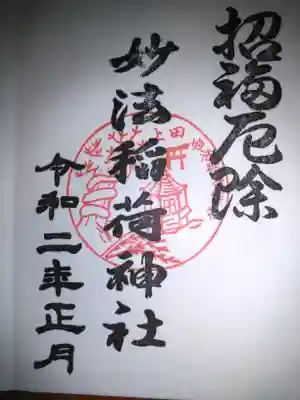 招福厄除
妙法稲荷神社
令和二年正月